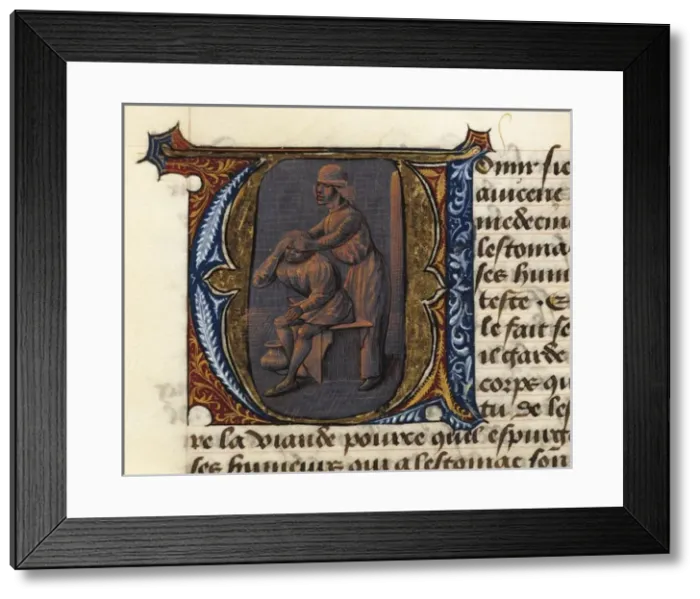 Vomir sic
auicene
medecin
lestoma
ses hum
teste · E
le fait se
il garde
corps qu
tu de les
re la viande pource quil espurg
ses humeurs qui a lestomac son